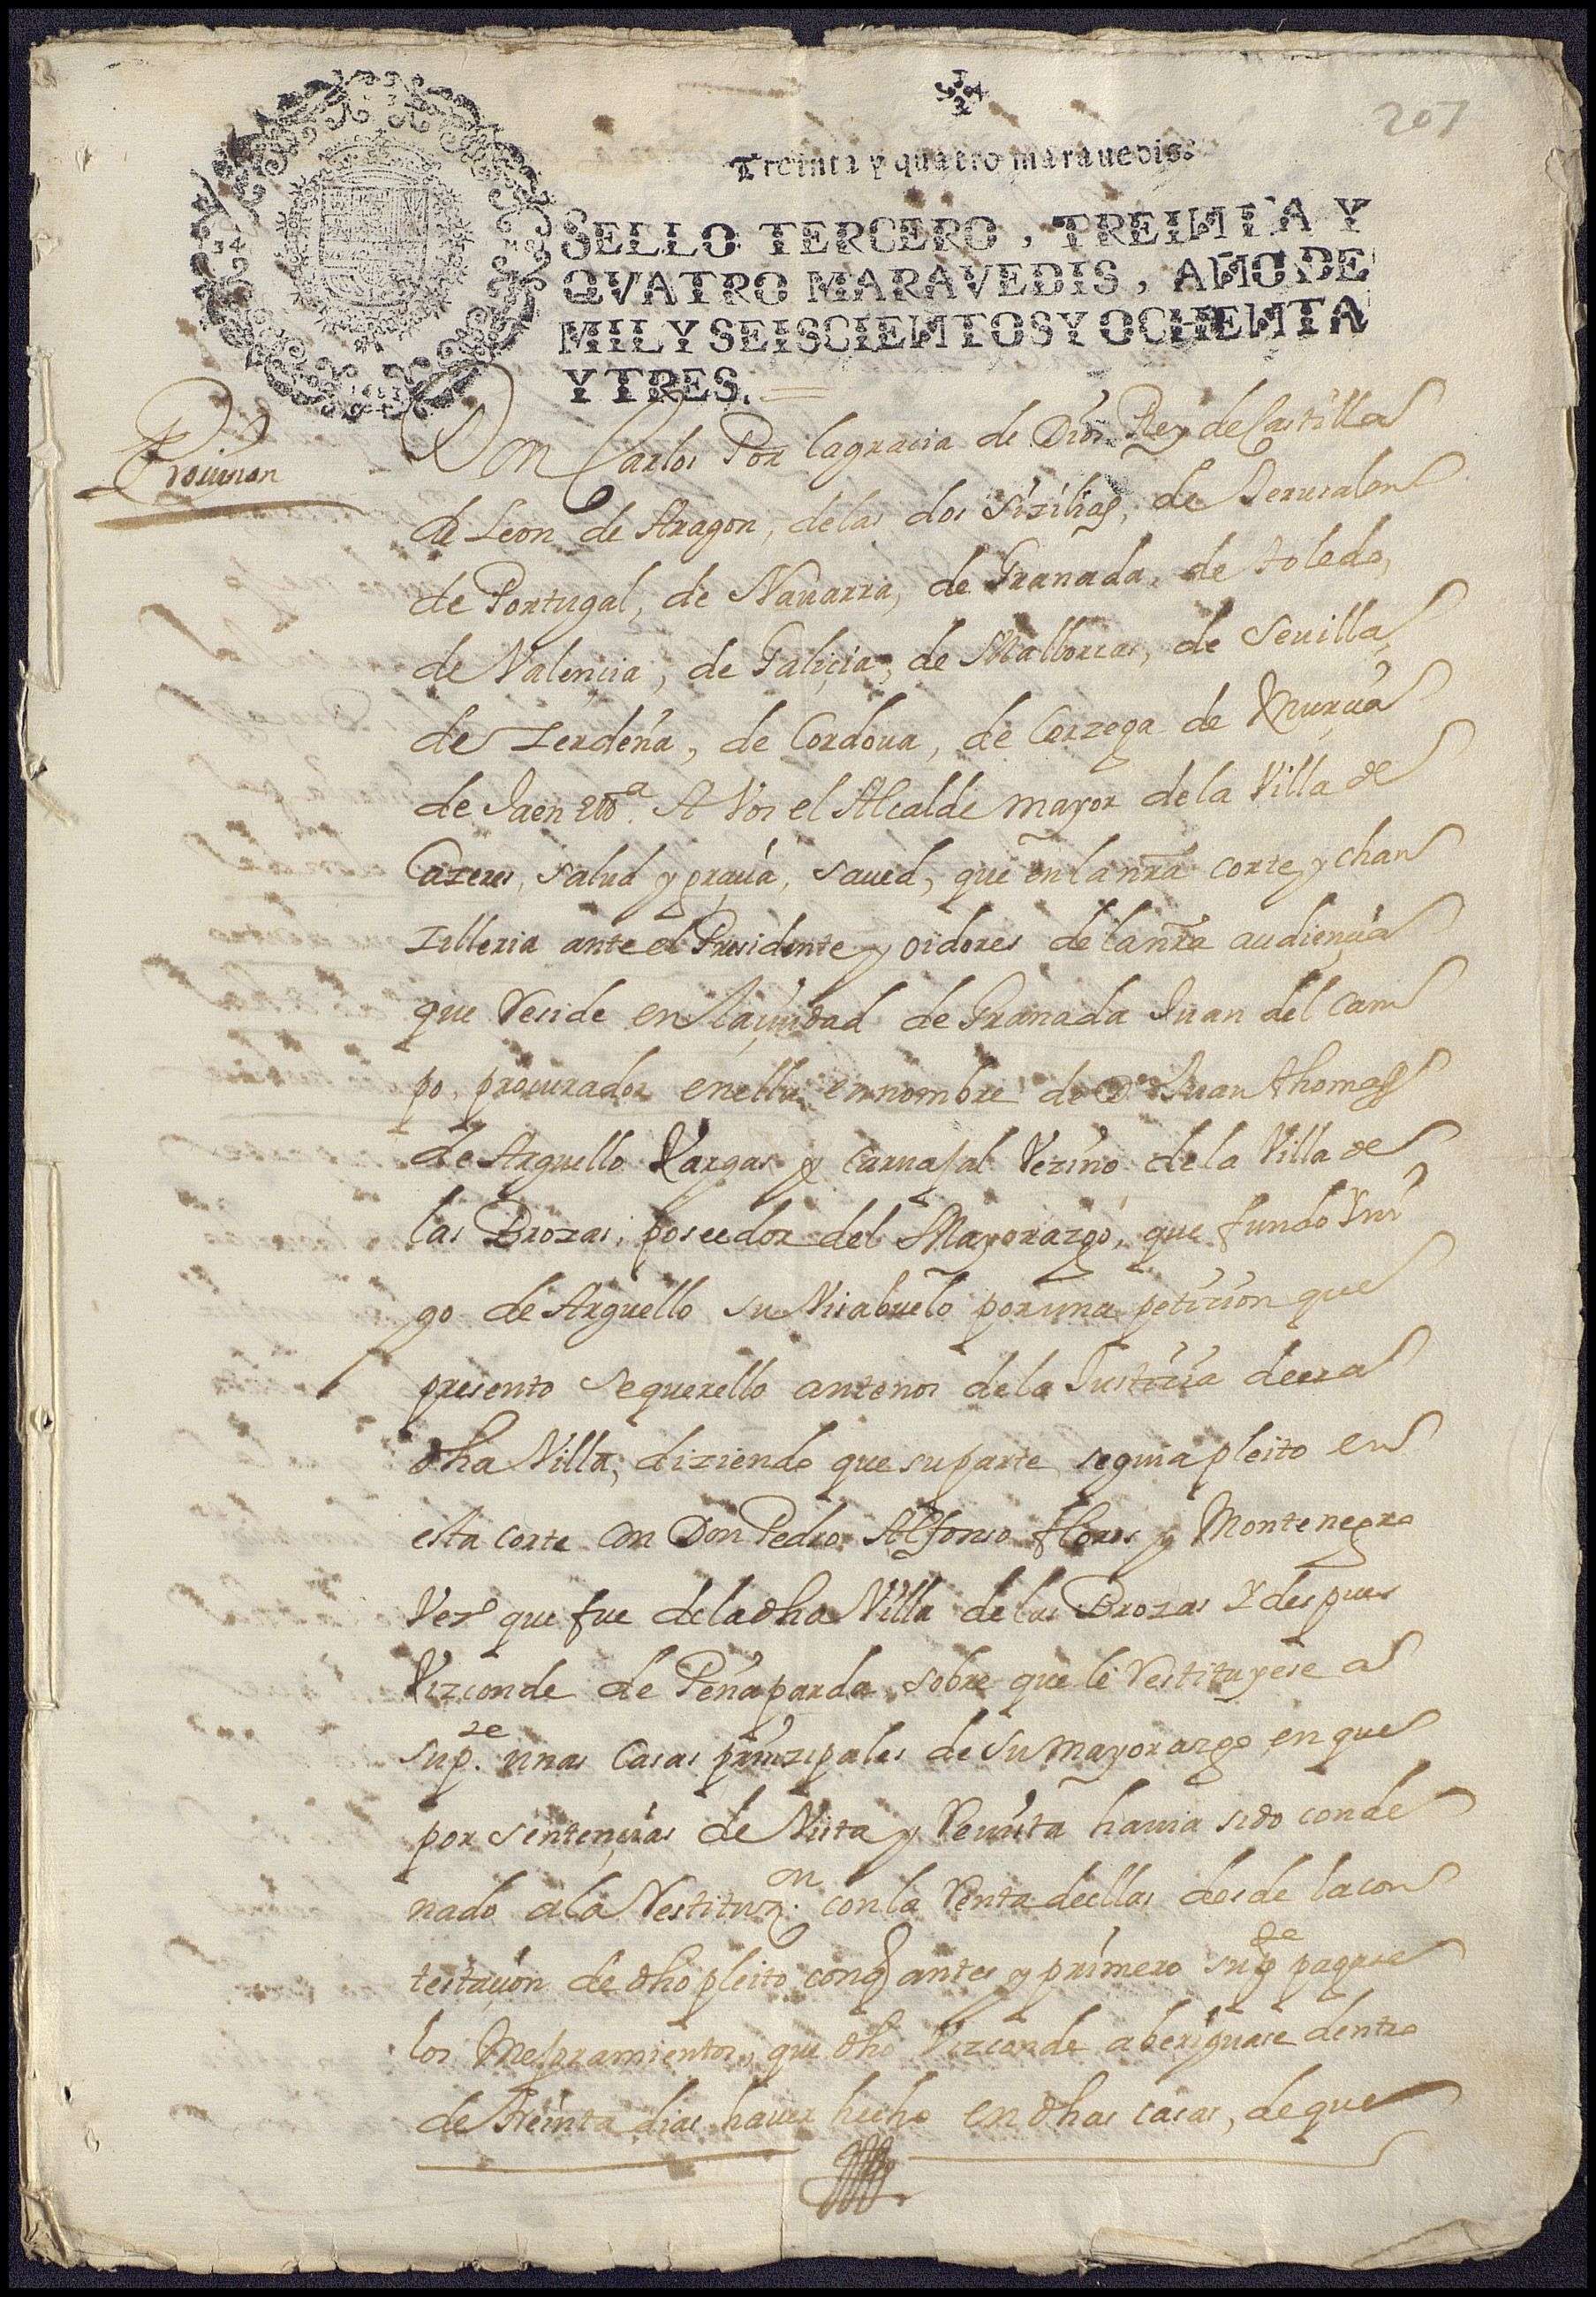 207
Treinta y quatro marauedis.
SELLO TERCERO, TREINTA Y
QVATRO MARAVEDIS, AÑO DE
MIL Y SEISCIENTOS Y OCHENTA
Y TRES.
Prouision
Don Carlos Por la gracia de Dios Rey de Castilla
de Leon de Aragon, de las dos Sizilias, de Jerusalen
de Portugal, de Nauarra, de Granada, de toledo,
de Valençia, de Galiçia, de Mallorcas, de Seuilla,
de Zerdeña, de Cordoua, de Corzega de Murçia
de Jaen etta. A Vos el Alcalde mayor de la Villa de
Cazeres, salud y graçia, saued, que en la nra corte y chan
zilleria ante el Presidente y oidores de la nra audiençia
que Reside en la çiudad de Granada Juan del Cam
po, procurador en ella en nombre de Dn Juan thomas
de Arguello Vargas y Caruajal Vezino de la Villa de
las Brozas, poseedor del Mayorazgo, que fundo Yni
go de Arguello su Visabuelo por una petiçion que
presento se querello ante nos de la Justiçia de esa
dha Villa, diziendo que su parte seguia pleito en
esta corte con Don Pedro Alfonso flores y Montenegro
Vezo que fue de la dha Villa de las Brozas Y despues
Vizconde de Peñaparda, sobre que le Restituyese a
su pe. unas Casas prinzipales de su mayorazgo en que
por sentençias de Vista y Reuista hauia sido conde
nado a la Restituzon. con la Renta de ellas desde la con
testaçion de dho pleito conq antes y primero su pe pagase
los Mejoramientos, que dho Vizconde aberiguase dentro
de treinta dias hauer hecho en dhas casas, de que